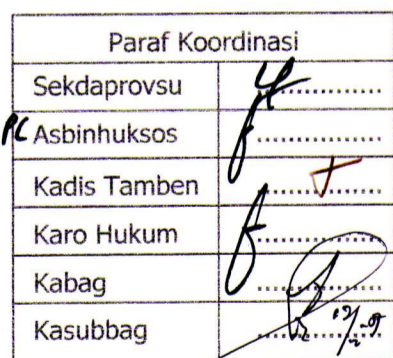 Paraf Koordinasi
Sekdaprovsu ..............
Asbinhuksos ..............
Kadis Tamben ..............
Karo Hukum ..............
Kabag ..............
Kasubbag ..............